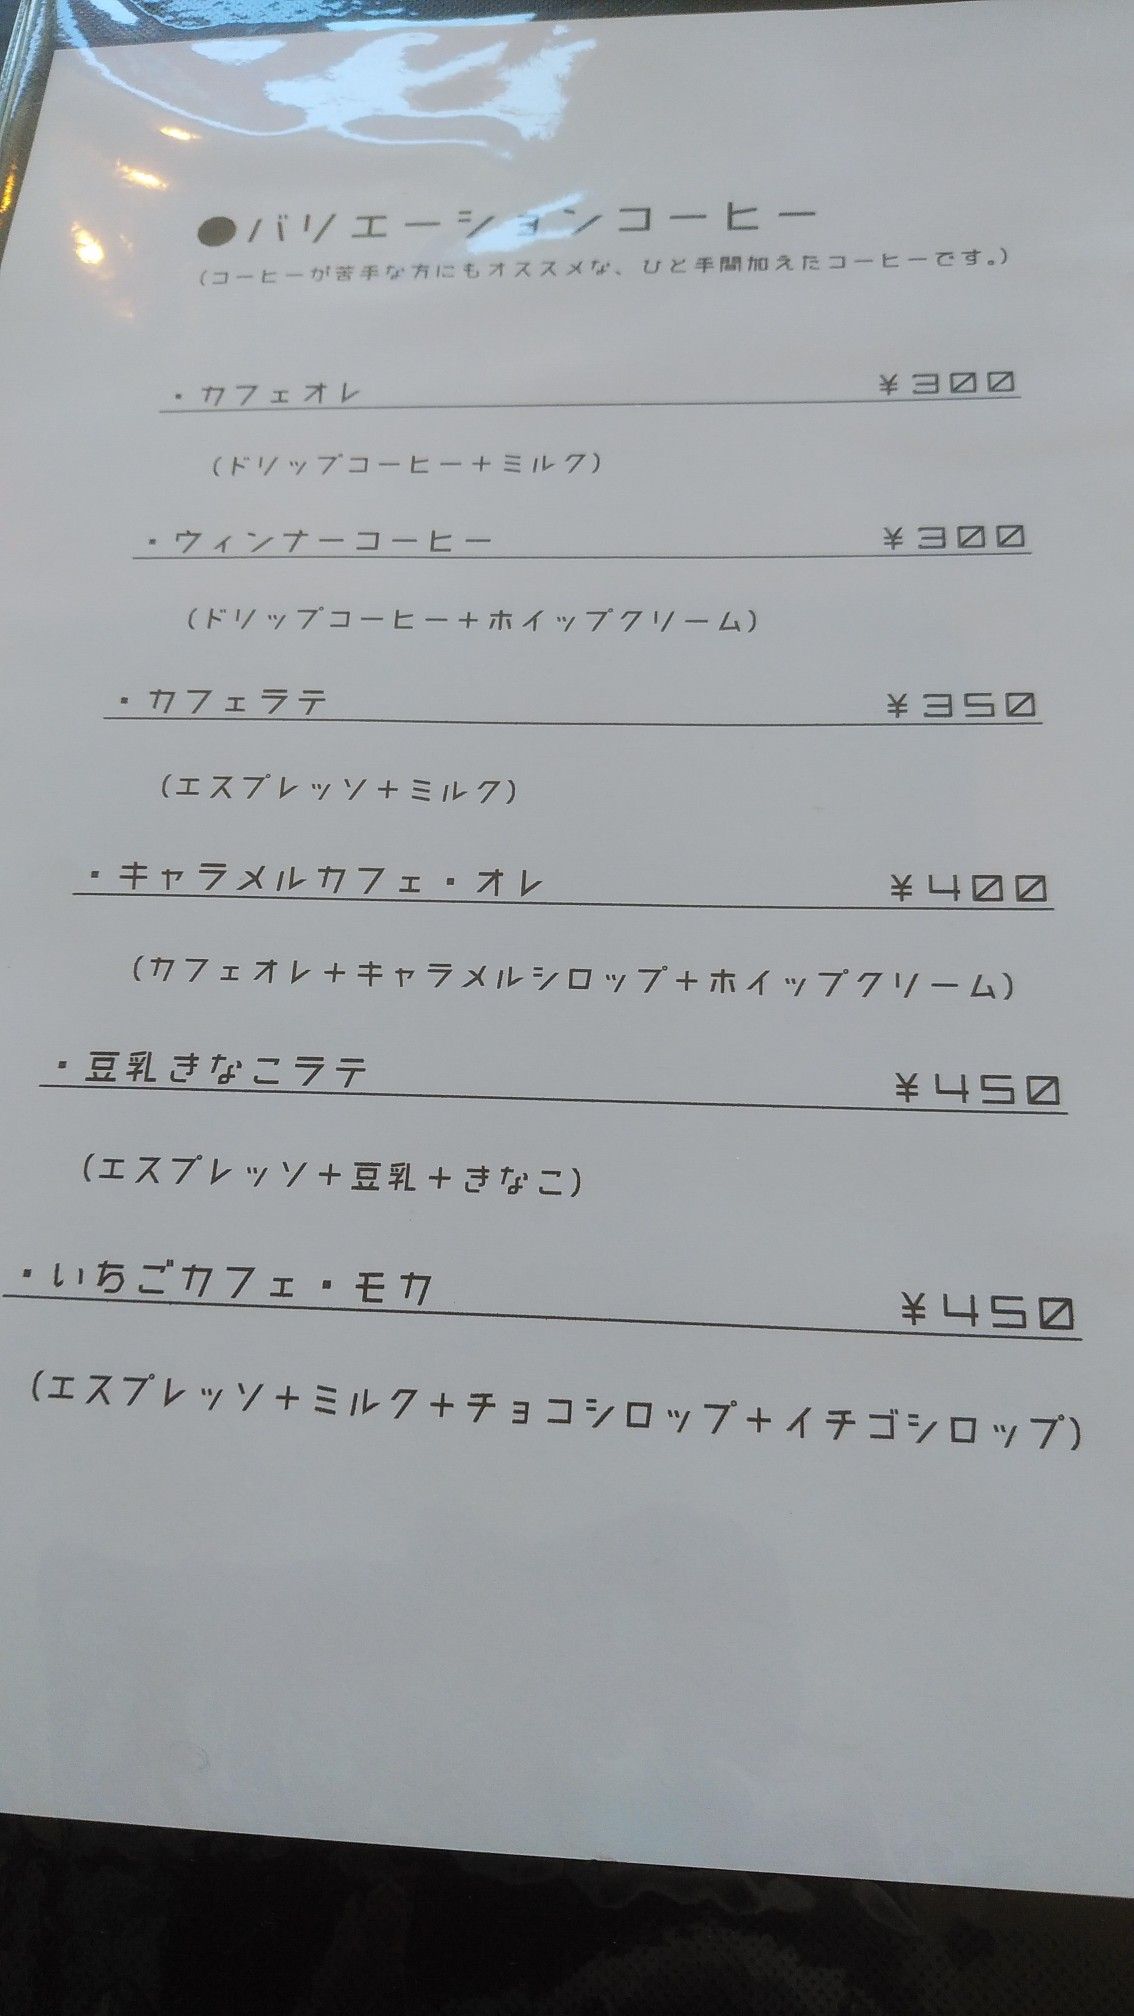 ●バリエーションコーヒー
(コーヒーが苦手な方にもオススメな、ひと手間加えたコーヒーです。)
・カフェオレ ¥300
(ドリップコーヒー+ミルク)
・ウィンナーコーヒー ¥300
(ドリップコーヒー+ホイップクリーム)
・カフェラテ ¥350
(エスプレッソ+ミルク)
・キャラメルカフェ・オレ ¥400
(カフェオレ+キャラメルシロップ+ホイップクリーム)
・豆乳きなこラテ ¥450
(エスプレッソ+豆乳+きなこ)
・いちごカフェ・モカ ¥450
(エスプレッソ+ミルク+チョコシロップ+イチゴシロップ)